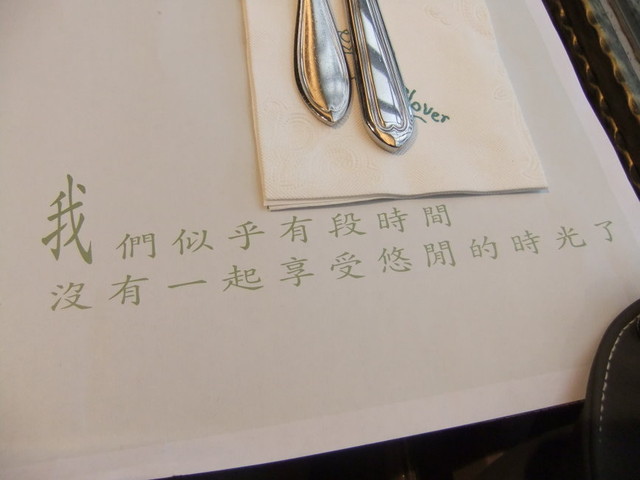 lover
我們似乎有段時間
沒有一起享受悠閒的時光了